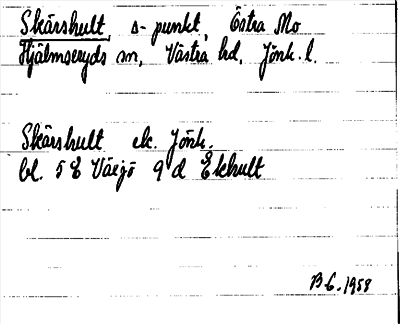 Skärshult, s-punkt, Östra Mo
Hjälmseryds sn, Västra hd, Jönk. l.
Skärshult ek. Jönk.
bl. 5 E Växjö 9 d Ekhult
B G. 1958